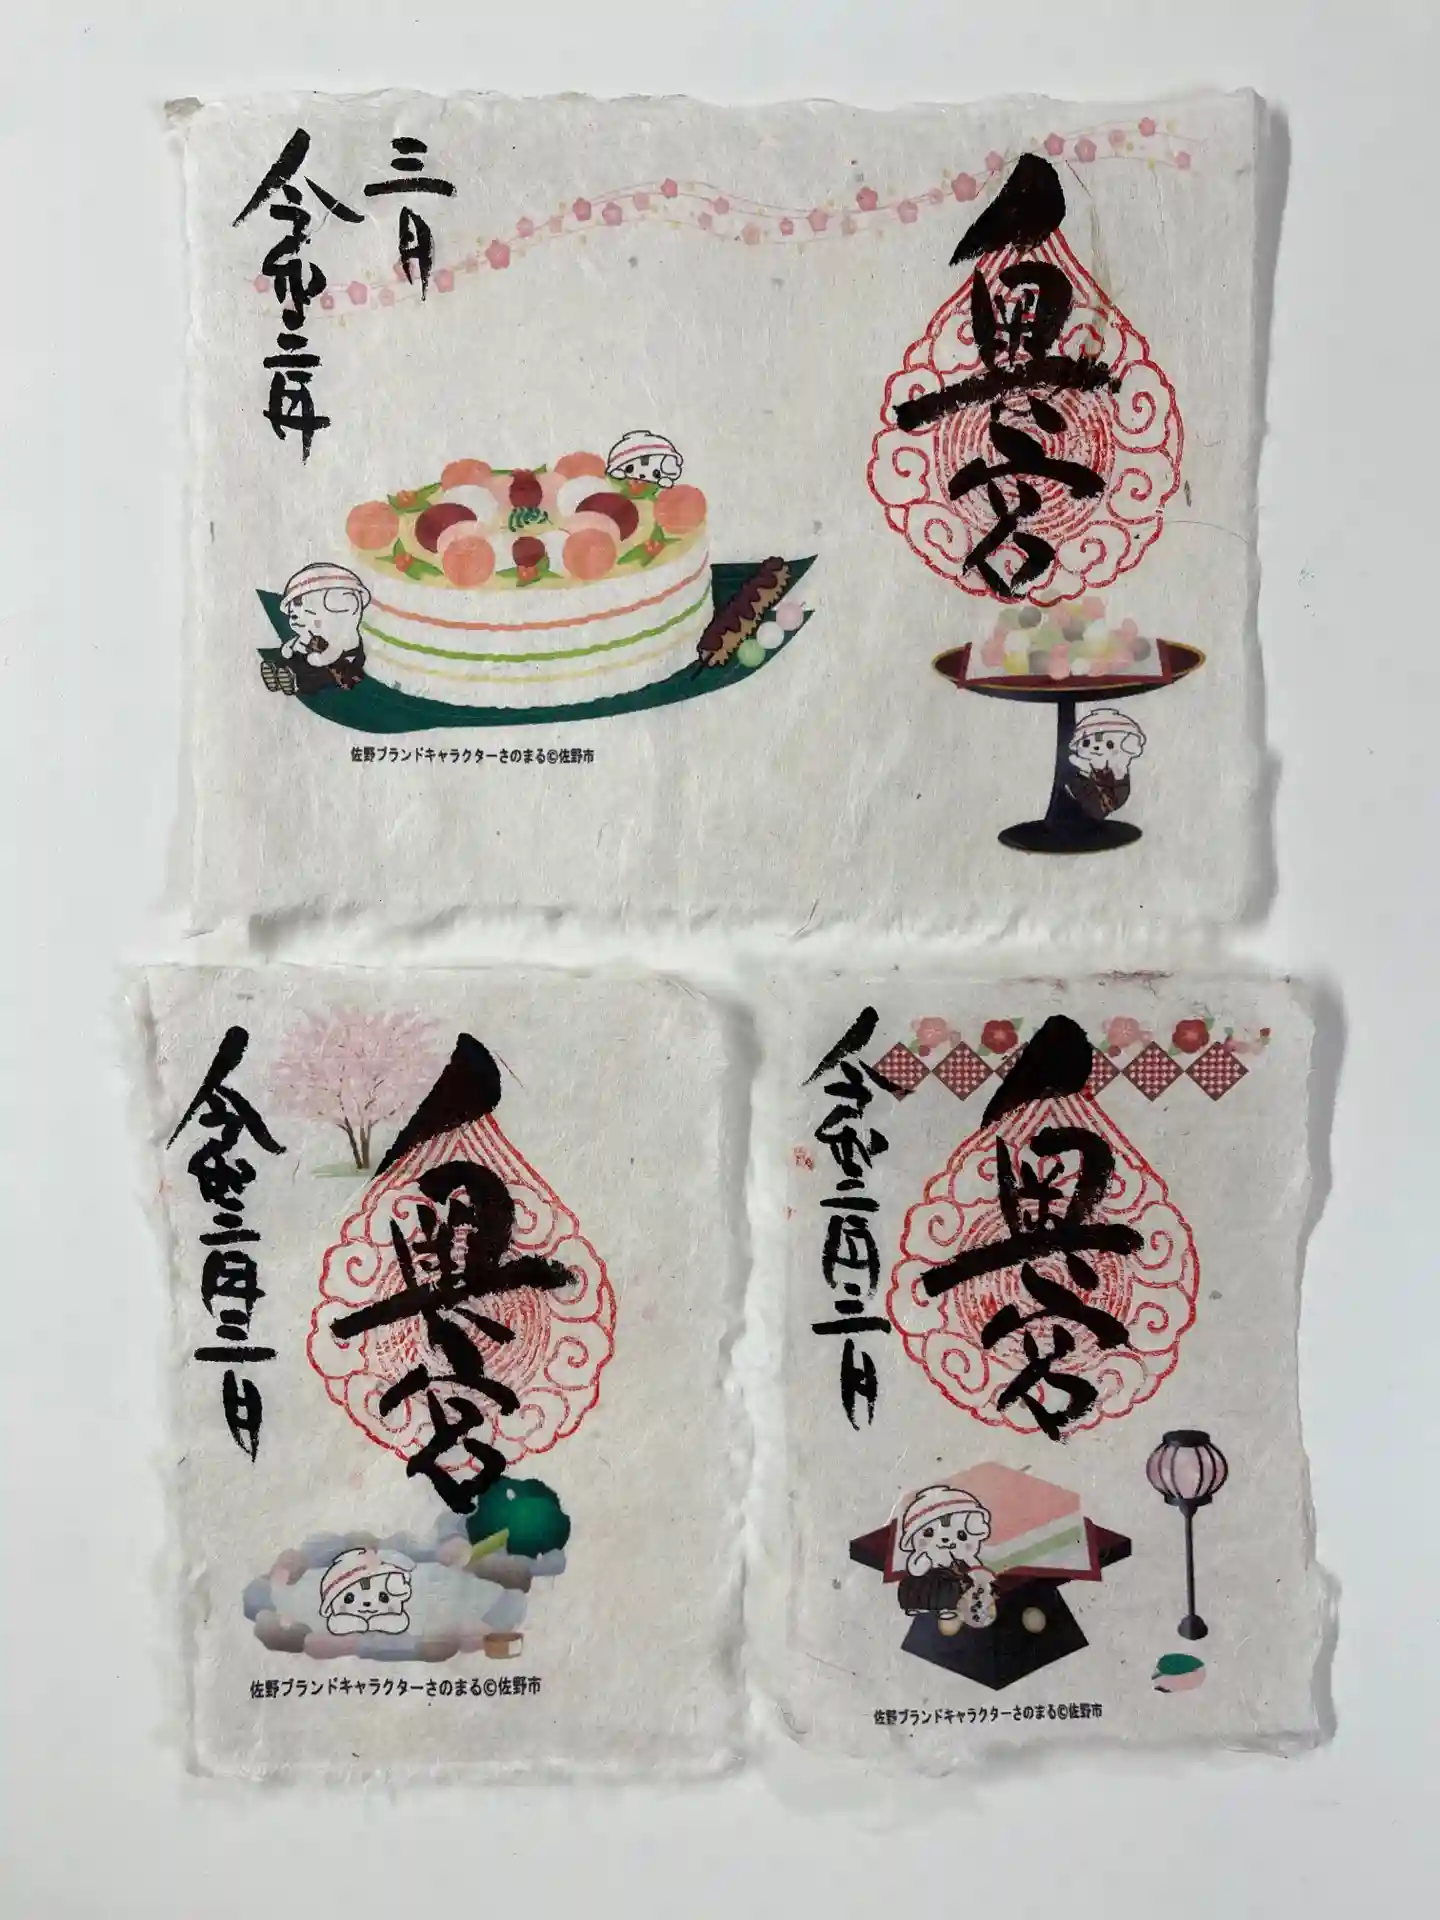 奥宮
三月
令和三年
佐野ブランドキャラクターさのまる©佐野市
奥宮
令和三年三月
佐野ブランドキャラクターさのまる©佐野市
奥宮
令和三年三月
佐野ブランドキャラクターさのまる©佐野市